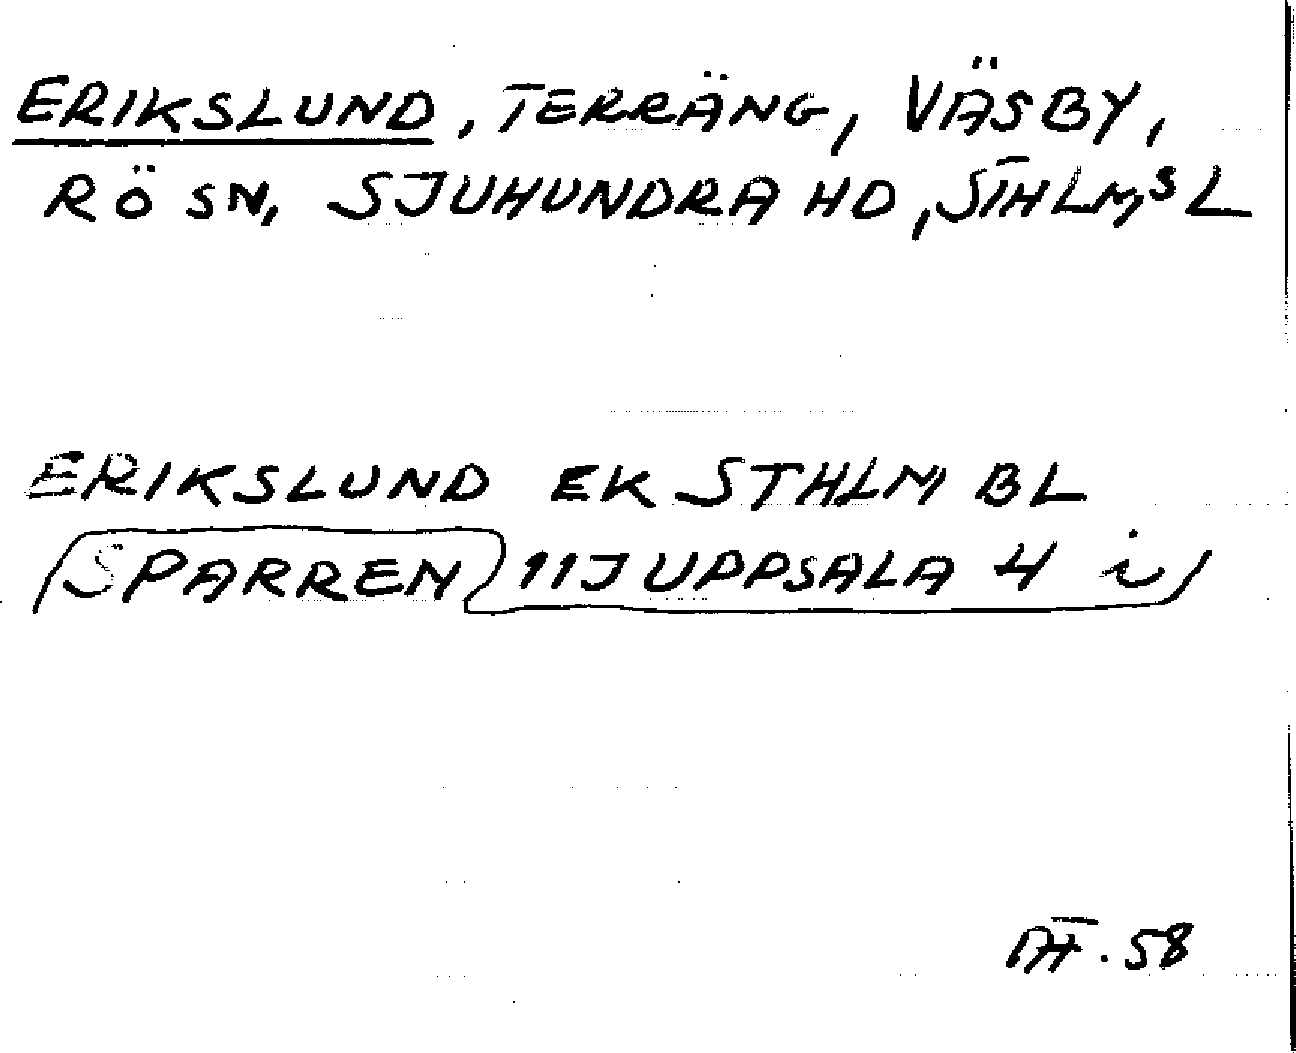 ERIKSLUND, TERRÄNG, VÄSBY,
RÖ SN, SJUHUNDRA HD, STHLMS L
ERIKSLUND EK STHLM BL
SPARREN 11J UPPSALA 4 i
58